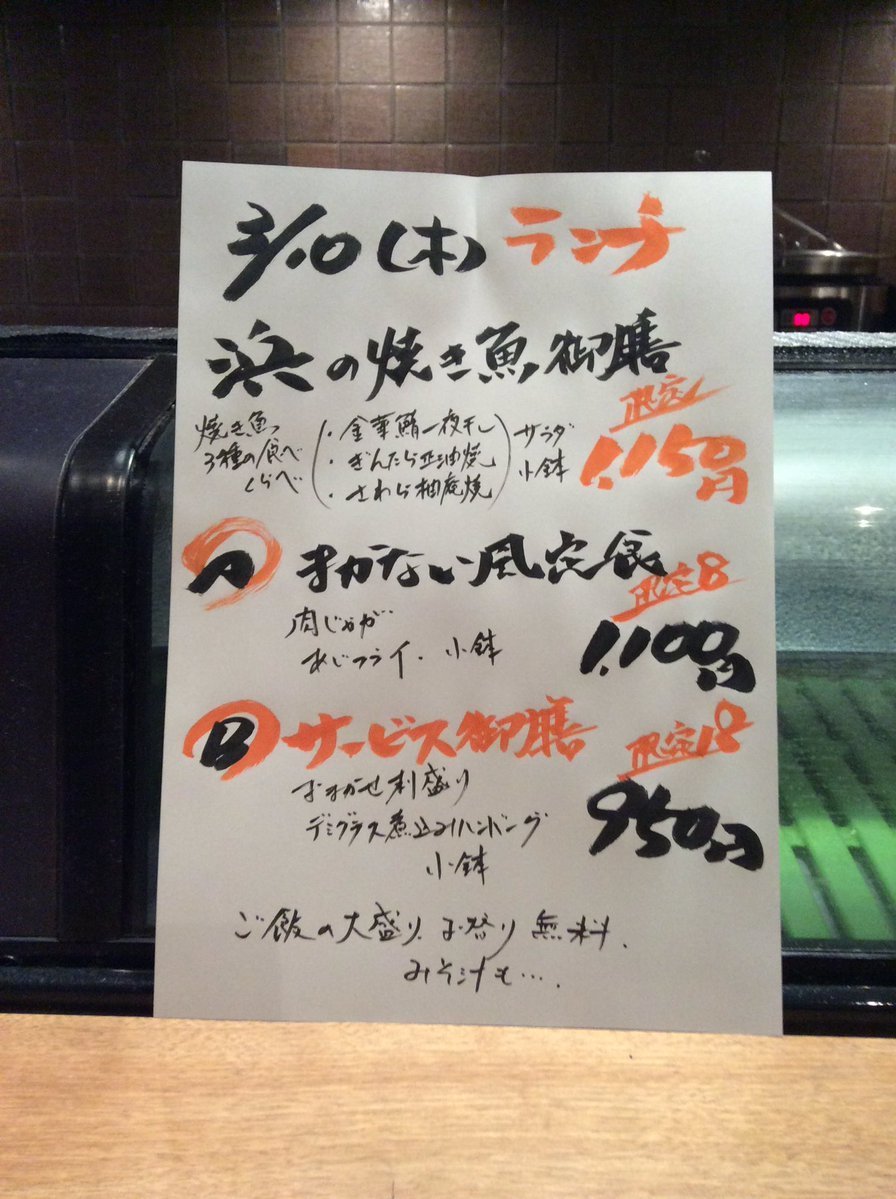 3/10(木)ランチ
浜の焼き魚御膳
焼き魚
3種の食べ
くらべ
・金華鯖一夜干し
・ぎんだら正油焼
・さわら柚庵焼
サラダ
小鉢
限定
1,150円
A まかない風定食
限定8
肉じゃが
あじフライ、小鉢
1,100円
B サービス御膳
限定18
おまかせ刺盛り
デミグラス煮込みハンバーグ
小鉢
950円
ご飯の大盛り、お替り無料、
みそ汁も…、